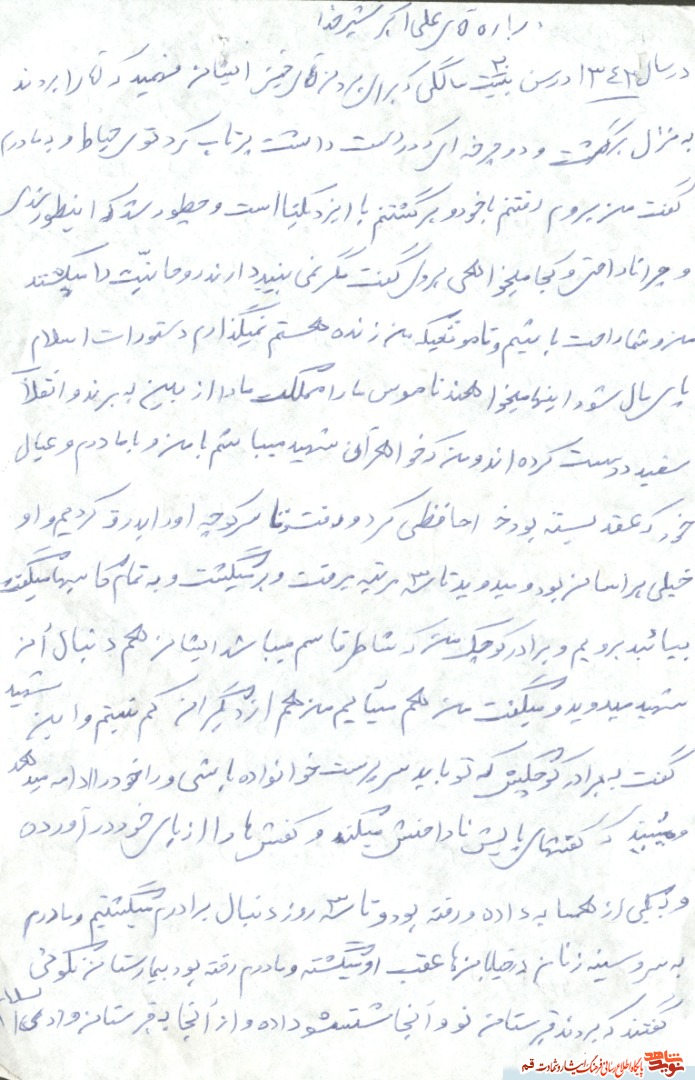 درباره ی علی اکبر شیرخدا
در سال ۱۳۴۲ در سن بیست سالگی که برای بردن آقای خمینی ایشان فهمید که آقا را بردند
به منزل برگشت و دوچرخه ای که در دست داشت پرتاب کرد توی حیاط و به مادرم
گفت من بروم رفتنم با خود و برگشتنم با ایزد یکتا است و چطور شد که اینطور شدی
و چرا ناراحتی و کجا میخواهی بروی گفت مگر نمی بینید دارند روحانیت را میکشند
من و شما راحت باشیم و تا موقعیکه من زنده هستم نمیگذارم دستورات اسلام
پای مال شود اینها میخواهند ناموس ما را مملکت ما را از بین به برند و انقلاب
سفید درست کرده اند و من که خواهر آن شهید میباشم با من و با مادرم و عیال
خود که عقد بسته بود خداحافظی کرد و رفت و تا سر کوچه او را بدرقه کردیم و او
خیلی هراسان بود و میدوید تا ۳ مرتبه میرفت و برمیگشت و به تمام کاسبها میگفت
بیائید برویم و برادر کوچک من که شاطر قاسم میباشد ایشان هم دنبال آن
شهید میدوید و میگفت من هم میآیم من هم از دیگران کم نیستم و این شهید
گفت به برادر کوچکش که تو باید سرپرست خانواده باشی و راه خود را ادامه میدهد
و میبیند که کفشهای پایش ناراحتش میکند و کفش ها را از پای خود درآورده
و به یکی از همسایه داده و رفته بود و تا ۳ روز دنبال برادرم میگشتیم و مادرم
به سر و سینه زنان در خیابانها عقب او میگشته و مادرم رفته بود بیمارستان نکوئی
گفتند که بردند قبرستان نو و آنجا شستشو داده و از آنجا به قبرستان وادی السلام
شاهد نوید
پایگاه اطلاع رسانی فرهنگ ایثار و شهادت قم